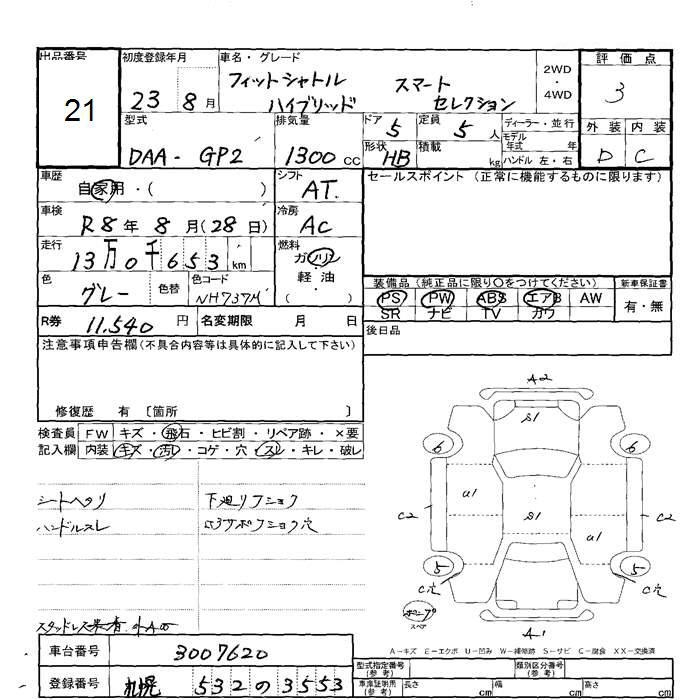 出品番号 初度登録年月 車名・グレード 評価点
21 23 8月 フィットシャトル スマート 2WD・4WD 3
ハイブリッド セレクション
型式 排気量 ドア 定員 ディーラー・並行 外装 内装
DAA-GP2 1300cc 5 5人 モデル年式 年 D C
形状 HB 積載 kg ハンドル 左・右
車歴 自家用・( ) シフト AT. セールスポイント (正常に機能するものに限ります)
車検 R8年8月(28日) 冷房 AC
走行 13万0千653km 燃料 ガソリン・軽油( )
色 グレー 色替 色コード NH737M
装備品(純正品に限り○をつけてください) 新車保証書
PS PW ABS エアB AW 有・無
SR ナビ TV カワ
R券 11.540円 名変期限 月 日 後日品
注意事項申告欄(不具合内容等は具体的に記入して下さい)
修復歴 有 〔箇所 〕
検査員 FW キズ・飛石・ヒビ割・リペア跡・×要
記入欄 内装 キズ・汚レ・コゲ・穴・スレ・キレ・破レ
シートヘタリ 下廻リフショク
ハンドルスレ
スタッドレス
A2
S1
6 6
U1 S1 U1
C2 C2
5 5
C穴 C穴
スペア
A1
A-キズ E-エクボ U-凹み W-補修跡 S-サビ C-腐食 XX-交換済
車台番号 3007620
型式指定番号(参考) 類別区分番号(参考)
登録番号 札幌 532 の 3553
車庫証明用(参考) 長さ cm 幅 cm 高さ cm